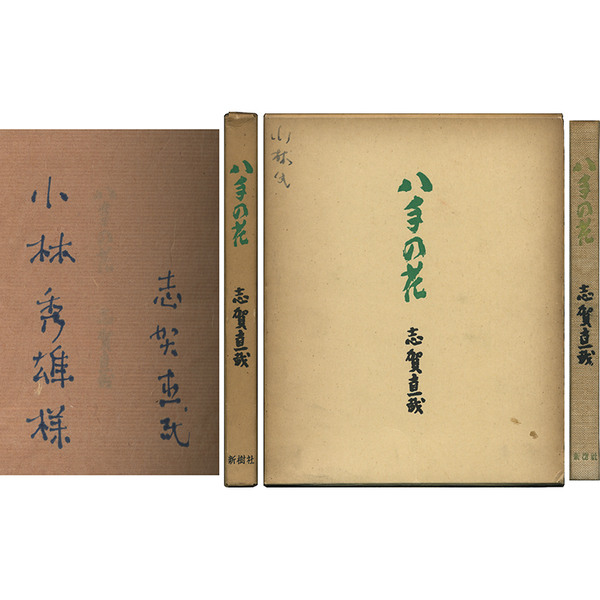 小林秀雄様
志賀直哉
八手の花
志賀直哉
新樹社
小林氏
八手の花
志賀直哉
八手の花
志賀直哉
新樹社